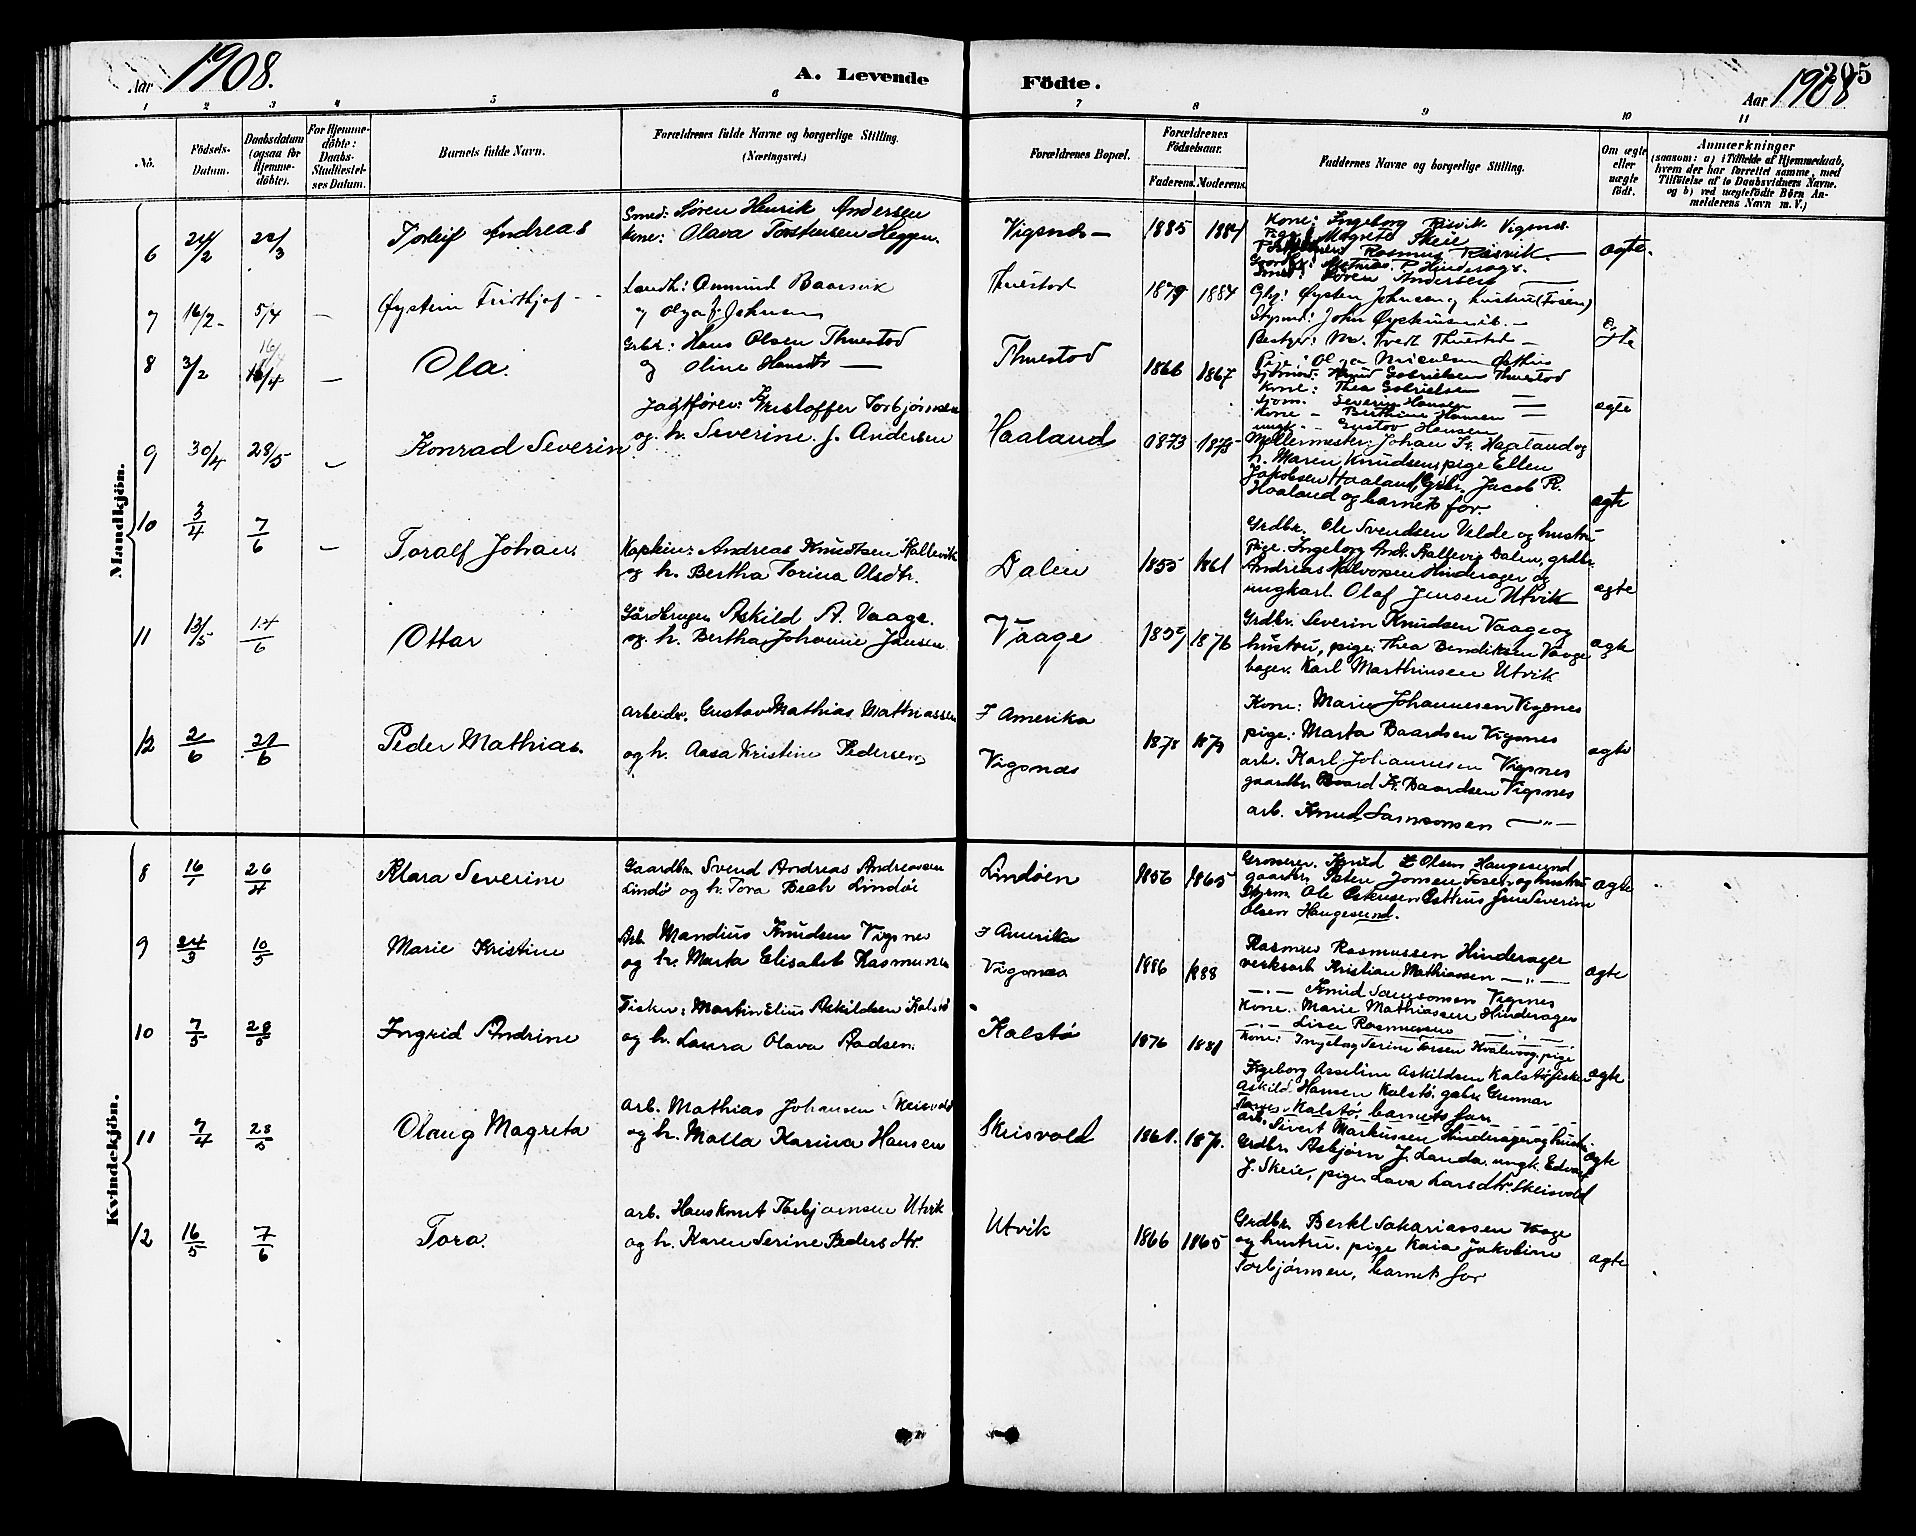 Aar 1908.
A. Levende Fødte.
Aar 1908
205
1 2 3 4 5 6 7 8 9 10 11
No.
Födsels-Datum.
Daabsdatum (ogsaa for Hjemme-döbte).
For Hjemme-döbte: Daabs-Stadfæstel-ses Datum.
Barnets fulde Navn.
Forældrenes fulde Navne og borgerlige Stilling. (Næringsvei.)
Forældrenes Bopæl.
Forældrenes Födselsaar.
Faderens. Moderens.
Faddernes Navne og borgerlige Stilling.
Om ægte eller uægte født.
Anmærkninger
(saasom: a) i Tilfælde af Hjemmedaab,
hvem der har forrettet samme, med
Tilföielse af to Daabsvidners Navne.
og b) ved uægtefödte Børn An-
melderens Navn m. V.)
Mandkjön.
6 Torleif Andreas
Smed: Søren Henrik Andersen
Kone: Olava Torstensen Heggen.
Vigsnæs 1885 1884
Kone: Ingeborg Risvik Vigsnæs.
Pige: Magrete Skeie
Rasmus Risvik
Smed: Søren Andersen
ægte.
7 16/2 5/4 Øystein Fridthjof
Landh: Onmund Baarsvik
og Olga f. Johnsen
Thuestad 1879 1884
Gbr: Øysten Johnsen og hustru (Fosen)
ægte
8 3/2 16/4 Ola.
Grbr: Hans Olsen Thuestad
og Oline Hansdtr
Thuestad 1866 1867
Kone: Thea Gabrielsen
Sjöm. Severin Hansen
Kone - Berthine Hansen
ungk. - Gustav Hansen
ægte
9 30/4 28/5 Konrad Severin
Jagtfører: Kristoffer Torbjørnsen
og h. Severine J. Andersen
Haaland 1873 1878
Møllermester: Johan Kr. Haaland og
h. Maren Knudsen, pige Ellen
Jakobsen Haaland, Grbr. Jacob R.
Haaland og barnets far.
ægte
10 3/4 7/6 Toralf Johan
Kaptein: Andreas Knudtsen Kallevik
og h. Bertha Torina Olsdtr.
Dalen 1855 1861
Grdbr. Ole Svendsen Velde og hustru
Pige. Ingeborg Andr. Kallevig Dalen, grdbr.
Andreas Halvorsen Hinderager og
ungkarl Olaf Jensen Utvik
ægte
11 13/5 14/6 Ottar
Gårdbruger Askild A. Vaage.
og h. Bertha Johanne Jansen
Vaage 1859 1876
Grdbr. Severin Knudsen Vaage og
hustru, pige: Thea Bendiksen Vaage
bager. Karl Marthinsen Utvik
ægte
12 2/6 21/6 Peder Mathias.
Arbeider. Gustav Mathias Mathiassen
og h. Aasa Kristine Pedersen
I Amerika
Vigsnæs 1878 1879
Kone: Marie Johannesen Vigsnes
pige: Marta Baardsen Vigsnes
arb. Karl Johannesen Vigsnes
gaardbr. Baard K. Baardsen Vigsnes
arb. Knud Samsonsen —"—
ægte
Kvindekjön.
8 16/1 26/4 Klara Severine
Gaardbr. Svend Andreas Andreassen
Lindø og h. Tora Bech Lindøe
Lindøen 1856 1865
Grosserer. Knud Olsen Haugesund
gaardbr. Peter Jonsen Fosen og hustru
Styrm. Ole Østhus Severine
Olsen Haugesund.
ægte
9 24/3 10/5 Marie Kristine
Arb. Mandius Knudsen Vigsnes
og h. Marta Elisabet Rasmusen
I Amerika
Vigsnæs 1886 1888
Rasmus Rasmussen Hinderager
verksarb. Kristian Mathiassen —"—
—"— Knud Samsonsen Vigsnes
Kone. Marie Mathiassen Hinderager
—"— Lisa Rasmussen —"—
ægte
10 7/5 28/5 Ingrid Andrine
Fisker: Martin Elius Askildsen Kalstø
og h. Laura Olava Aadsen.
Kalstø 1876 1881
Kone: Ingeborg Serine Torsen Kvalevaag, pige
Ingeborg Asseline Askildsen Kalstø, fisker
Askild Hansen Kalstø. gabr. Gunnar
Kalstø, barnets far
ægte
11 7/4 28/5 Olaug Magreta
arb. Mathias Johansen Skeisvold
og h. Malla Karina Hansen
Skeisvold 1861. 1871.
arb. Sivert Markussen Hinderager og hustr.
Grdbr. Asbjørn J. Landa. ungk. Edvard
J. Skeie, pige Lava Larsdtr. Skeisvold
ægte
12 16/5 7/6 Tora.
arb. Hans Knut Torbjørnsen Utvik
og h. Karen Serine Pedersdtr.
Utvik 1866 1865
Grdbr. Bertel Sakariassen Vaage
og hustru. pige Kaia Jakobine
Torbjørnsen, barnets far
ægte